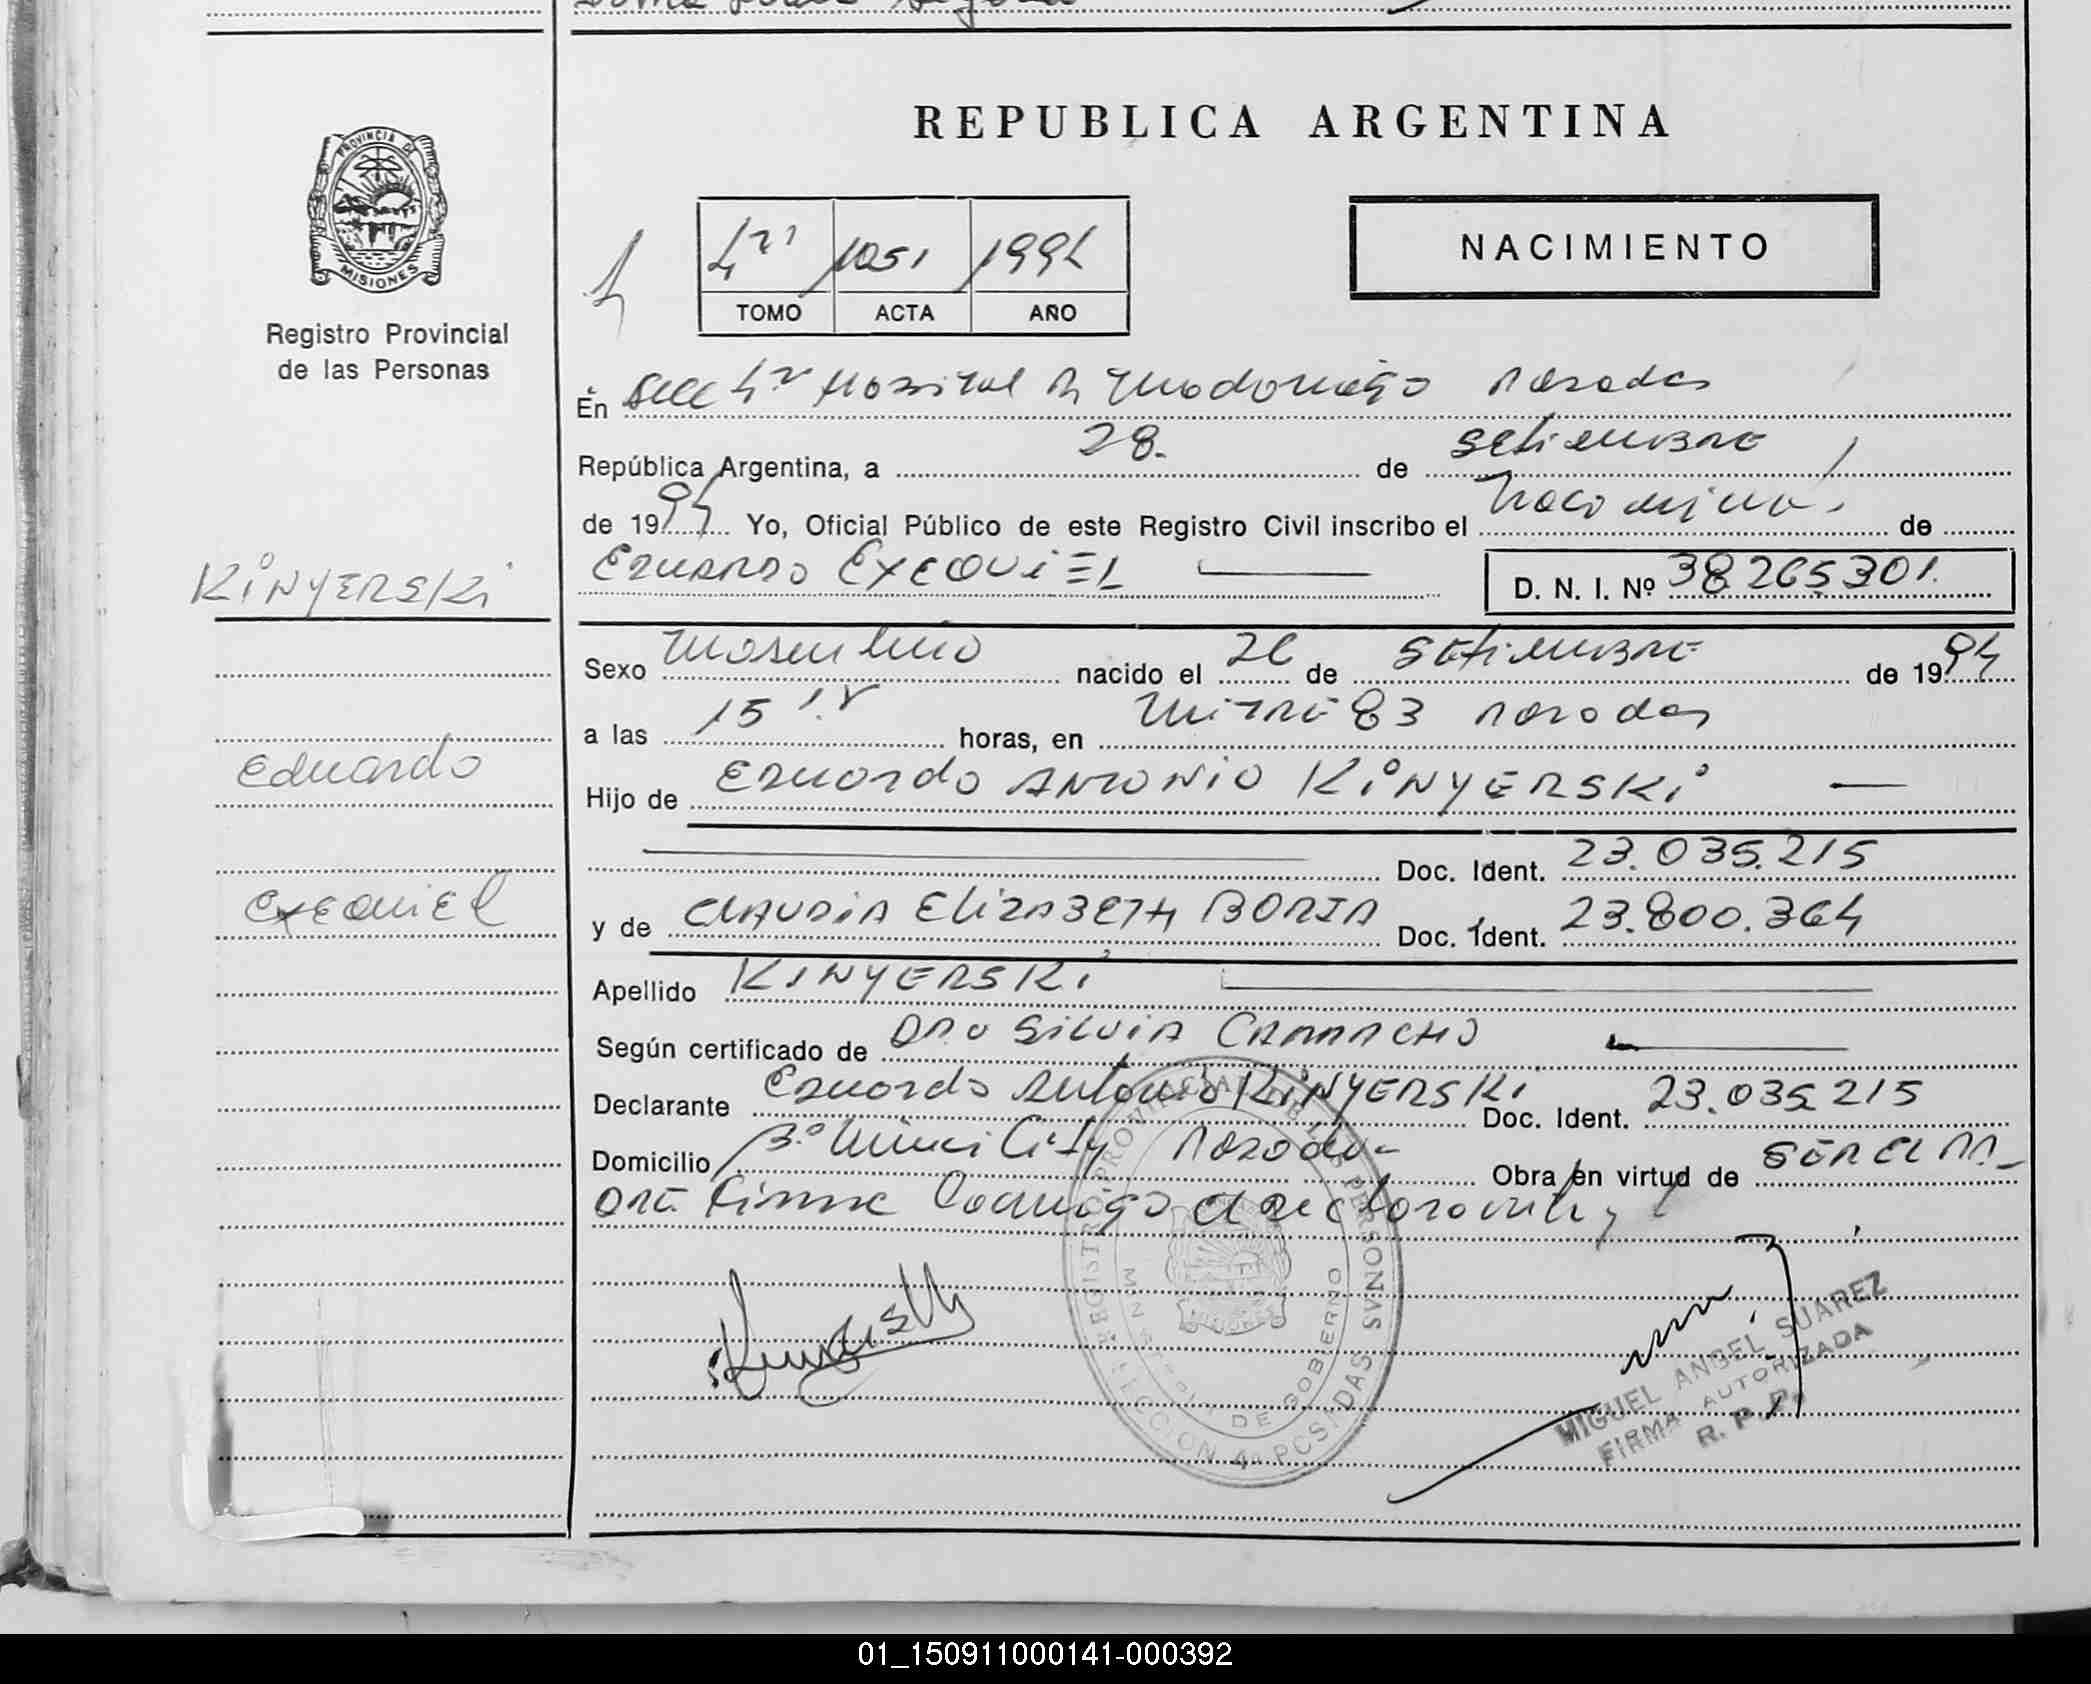 PROVINCIA DE
MISIONES
Registro Provincial
de las Personas
REPUBLICA ARGENTINA
1051 1994
TOMO ACTA AÑO
NACIMIENTO
En Secc 4ª Hospital R Madariaga Posadas
República Argentina, a 28. de Setiembre
de 1994 Yo, Oficial Público de este Registro Civil inscribo el Nacimiento de
Eduardo Exequiel D. N. I. Nº 38.265.301.
KiNYERSKi
Eduardo
Exequiel
Sexo Masculino nacido el 26 de Setiembre de 1994
a las 15 horas, en Mitre 83 Posadas
Hijo de Eduardo Antonio KiNYERSKi
Doc. Ident. 23.035.215
y de Claudia Elizabeth BORJA Doc. Ident. 23.800.364
Apellido KINYERSKi
Según certificado de Dra Silvia Camacho
Declarante Eduardo Antonio KiNYERSKi Doc. Ident. 23.035.215
Domicilio Bº Posadas Obra en virtud de ser el PA-
DRE Firma Conmigo el declarante
REGISTRO PROVINCIAL DE LAS PERSONAS
MINISTERIO DE GOBIERNO
SECCION 4ª POSADAS
MIGUEL ANGEL SUAREZ
FIRMA AUTORIZADA
R. P. P.
01_150911000141-000392